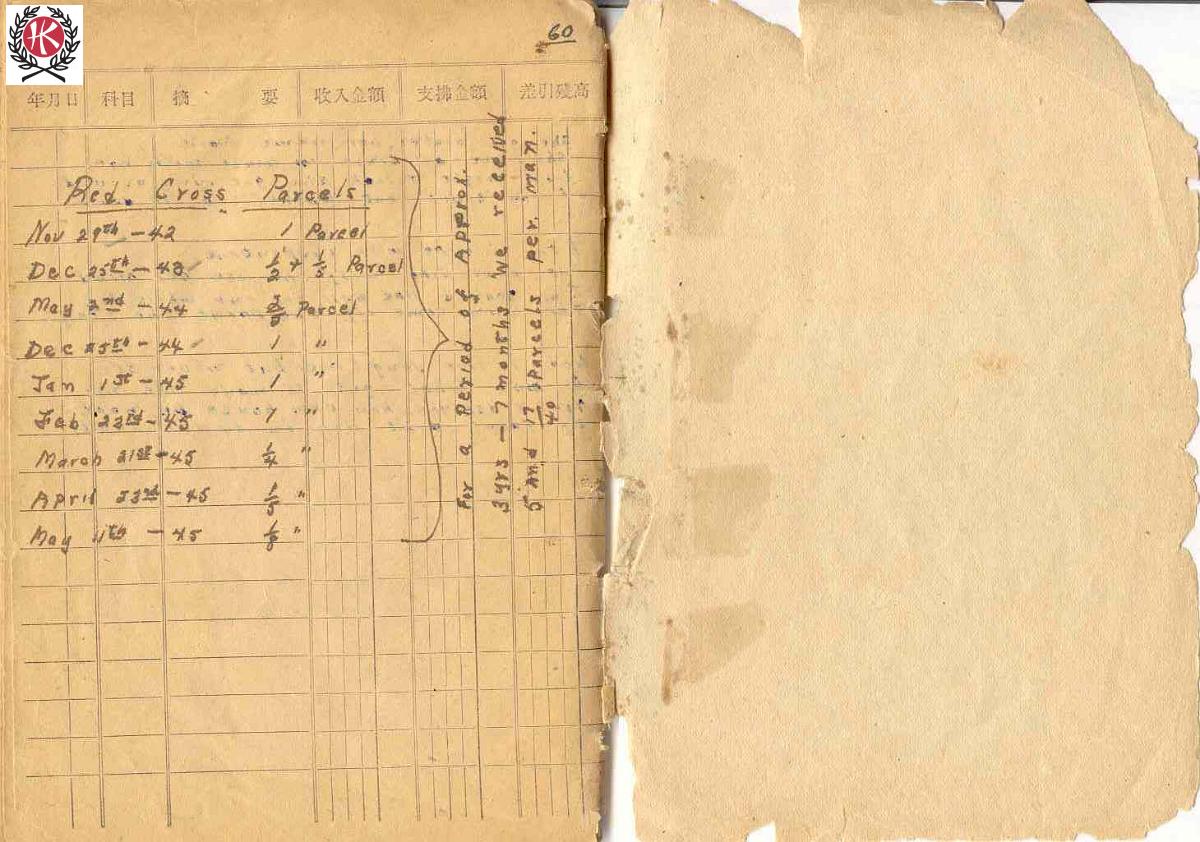 HK
60
年月日 科目 摘要 收入金額 支拂金額 差引殘高
Red Cross Parcels
Nov 29th - 42 1 Parcel
Dec 25th - 43 1/2 + 1/5 Parcel
May 2nd - 44 Parcel
Dec 25th - 44 1 "
Jan 1st - 45 1 "
Feb 22nd - 45 1 "
March 21st - 45 1/4 "
April 23rd - 45 1/5 "
May 11th - 45 1/8 "
For a Period of Approx.
3 yrs - 7 months we received
5 and 17/40 parcels per. man.